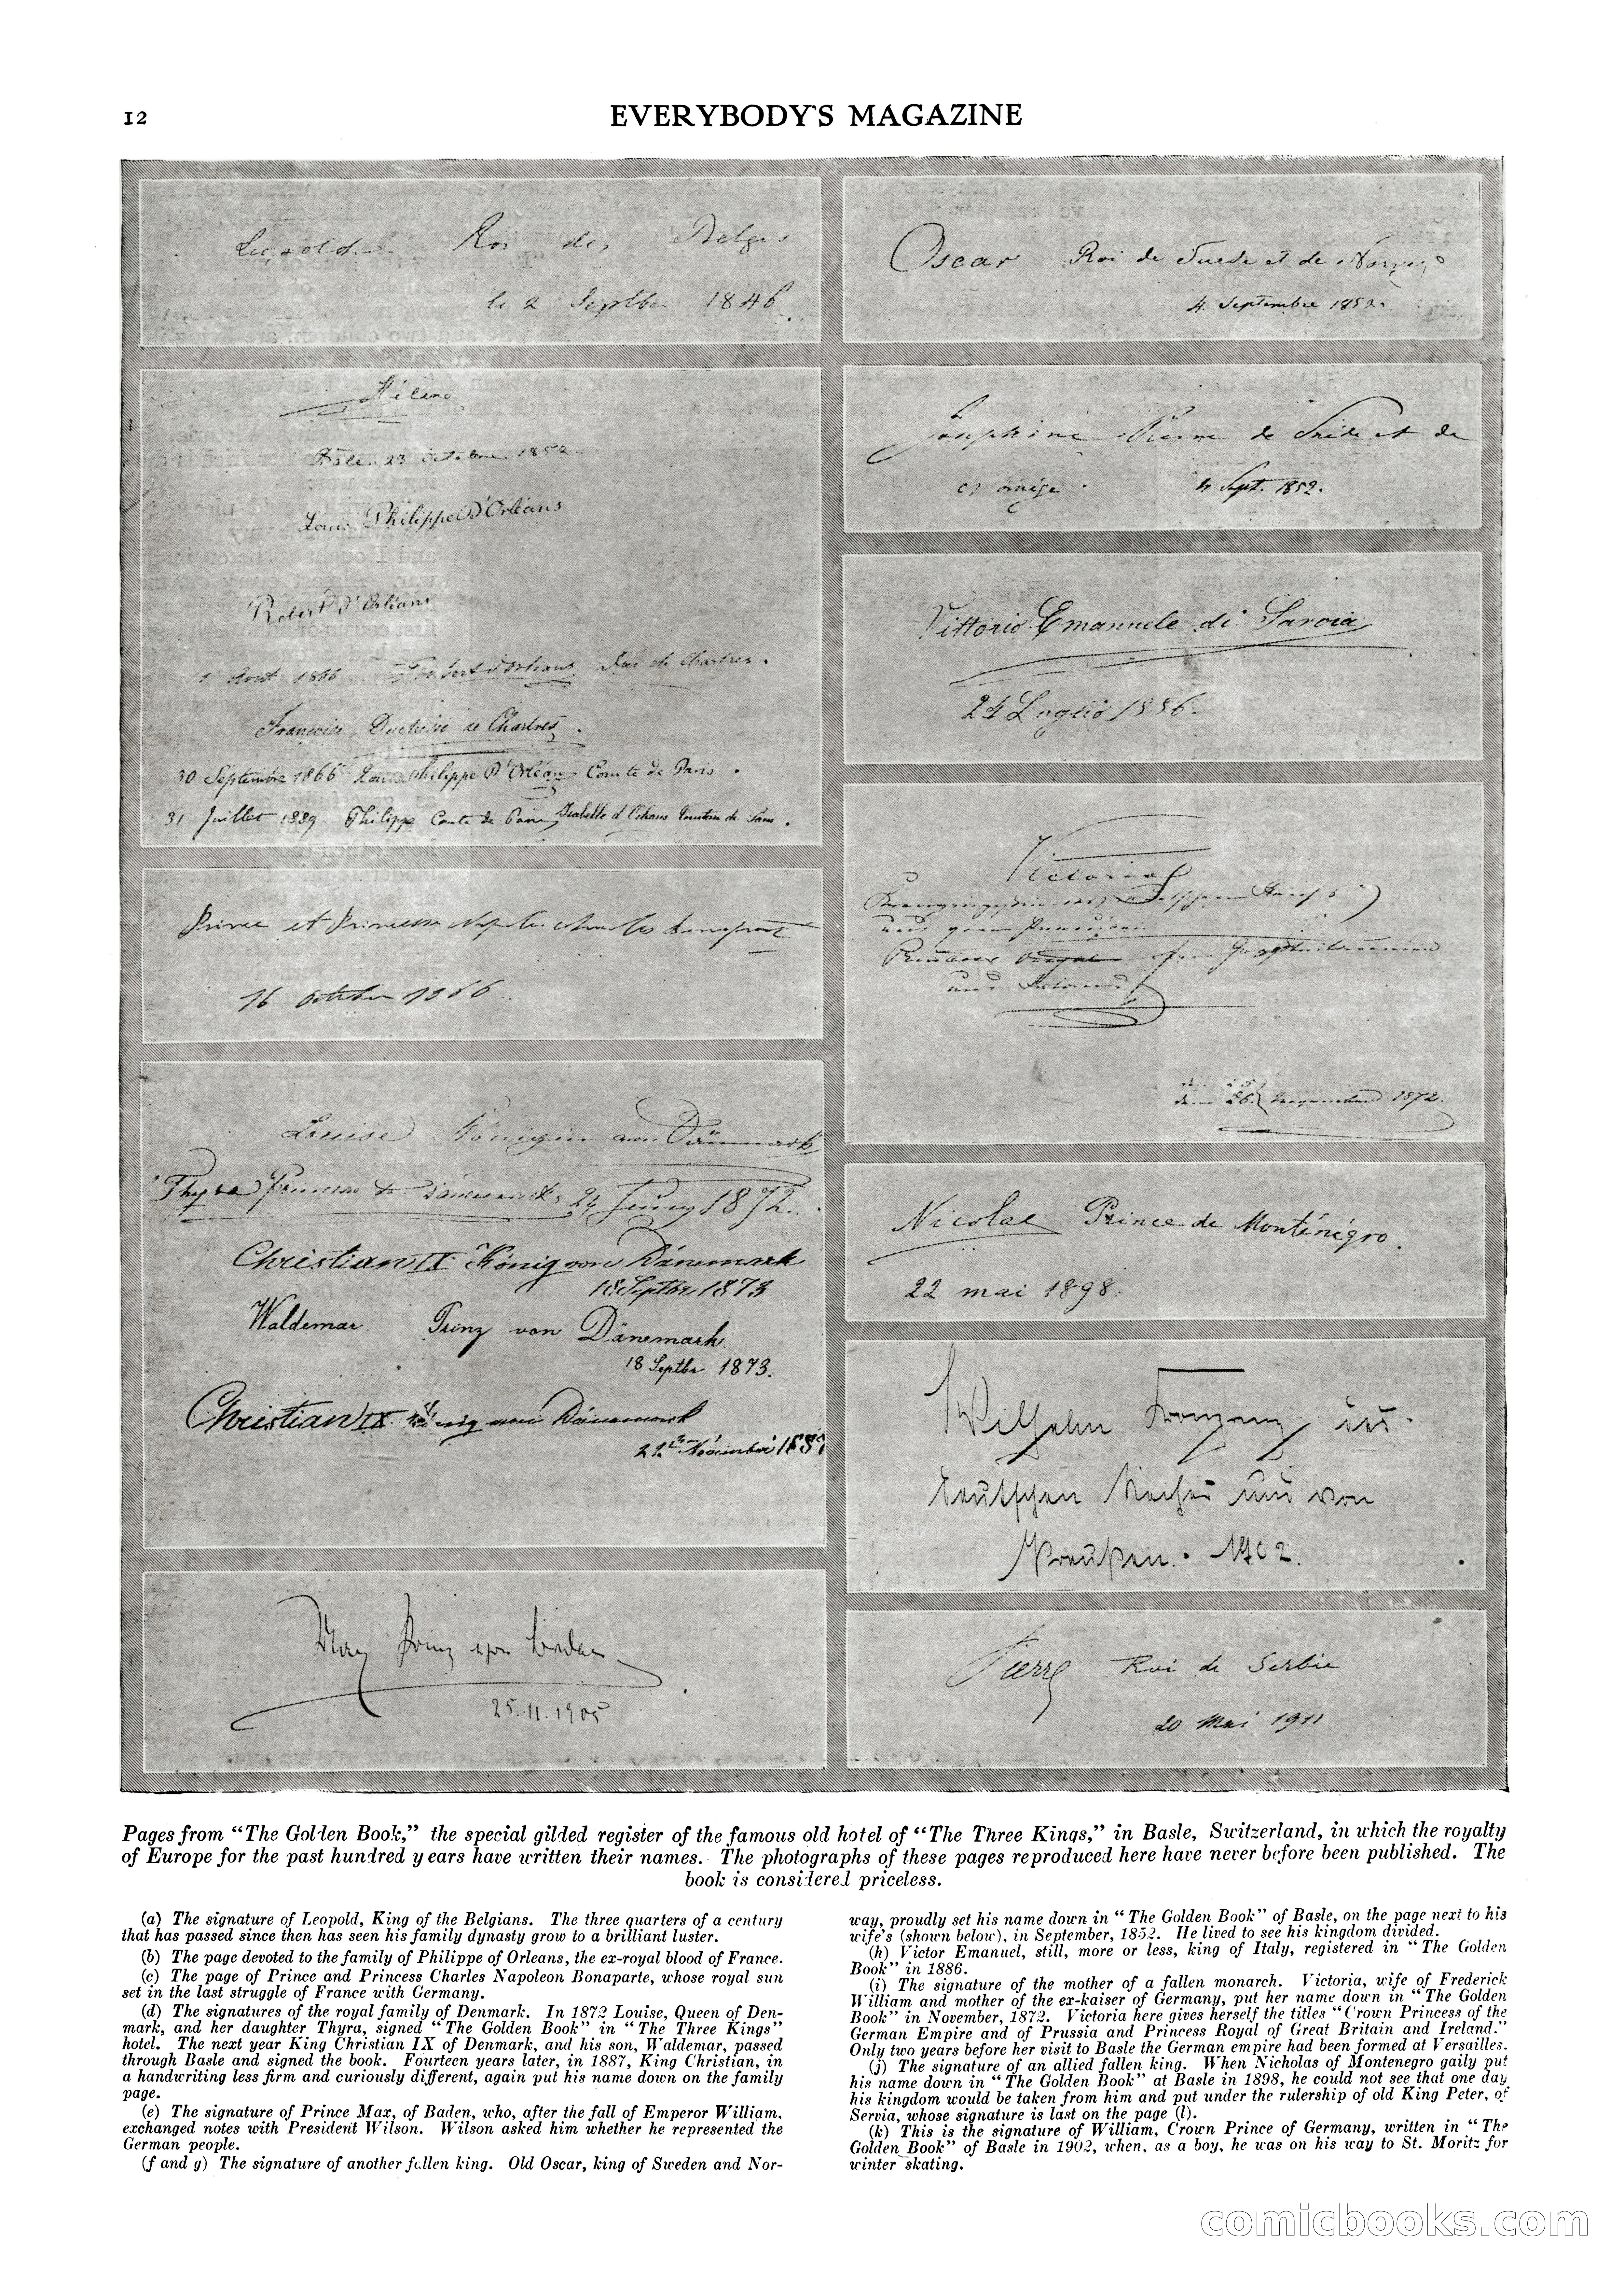 12
EVERYBODY'S MAGAZINE
Leopold Roi des Belges
le 2 Septbre 1846
Hélène
23 octobre 1852
Louis Philippe D'Orléans
Robert d'Orléans
1 Août 1866 Robert d'Orléans Duc de Chartres.
Françoise Duchesse de Chartres.
30 Septembre 1866 Louis Philippe D'Orléans Comte de Paris.
31 Juillet 1889 Philippe Comte de Paris, Isabelle d'Orléans Comtesse de Paris.
Prince et Princesse Napoléon Charles Bonaparte
16 octobre 1866
Louise Königin von Dänemark
Thyra Princesse de Danemark, 24 Juny 1872.
Christian IX König von Dänemark
18 Septbr 1873
Waldemar Prinz von Dänemark
18 Septbr 1873.
Christian IX König von Dänemark
22 November 1887
Max Prinz von Baden
25.11.1905
Oscar Roi de Suede et de Norvège
4 Septembre 1852.
Josephine Reine de Suède et de
Norvège. 4 Sept. 1852.
Vittorio Emanuele di Savoia
24 Luglio 1886.
Victoria
Kronprinzessin des Deutschen Reichs
und von Preussen
Princess Royal von Grossbritannien
und Irland
den 26. 1872.
Nicolas Prince de Monténégro.
22 mai 1898.
Wilhelm Kronprinz des
Deutschen Reiches und von
Preußen. 1902.
Pierre Roi de Serbie
20 Mai 1911
Pages from "The Golden Book," the special gilded register of the famous old hotel of "The Three Kings," in Basle, Switzerland, in which the royalty
of Europe for the past hundred years have written their names. The photographs of these pages reproduced here have never before been published. The
book is considered priceless.
(a) The signature of Leopold, King of the Belgians. The three quarters of a century
that has passed since then has seen his family dynasty grow to a brilliant luster.
(b) The page devoted to the family of Philippe of Orleans, the ex-royal blood of France.
(c) The page of Prince and Princess Charles Napoleon Bonaparte, whose royal sun
set in the last struggle of France with Germany.
(d) The signatures of the royal family of Denmark. In 1872 Louise, Queen of Den-
mark, and her daughter Thyra, signed "The Golden Book" in "The Three Kings"
hotel. The next year King Christian IX of Denmark, and his son, Waldemar, passed
through Basle and signed the book. Fourteen years later, in 1887, King Christian, in
a handwriting less firm and curiously different, again put his name down on the family
page.
(e) The signature of Prince Max, of Baden, who, after the fall of Emperor William,
exchanged notes with President Wilson. Wilson asked him whether he represented the
German people.
(f and g) The signature of another fallen king. Old Oscar, king of Sweden and Nor-
way, proudly set his name down in "The Golden Book" of Basle, on the page next to his
wife's (shown below), in September, 1852. He lived to see his kingdom divided.
(h) Victor Emanuel, still, more or less, king of Italy, registered in "The Golden
Book" in 1886.
(i) The signature of the mother of a fallen monarch. Victoria, wife of Frederick
William and mother of the ex-kaiser of Germany, put her name down in "The Golden
Book" in November, 1872. Victoria here gives herself the titles "Crown Princess of the
German Empire and of Prussia and Princess Royal of Great Britain and Ireland."
Only two years before her visit to Basle the German empire had been formed at Versailles.
(j) The signature of an allied fallen king. When Nicholas of Montenegro gaily put
his name down in "The Golden Book" at Basle in 1898, he could not see that one day
his kingdom would be taken from him and put under the rulership of old King Peter, of
Servia, whose signature is last on the page (l).
(k) This is the signature of William, Crown Prince of Germany, written in "The
Golden Book" of Basle in 1902, when, as a boy, he was on his way to St. Moritz for
winter skating.
comicbooks.com